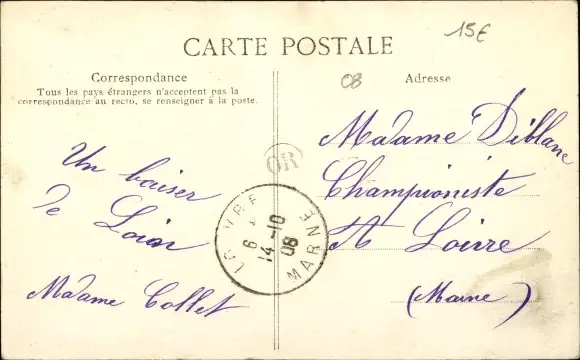 15€
CARTE POSTALE
08
Correspondance
Tous les pays étrangers n'acceptent pas la
correspondance au recto, se renseigner à la poste.
Un baiser
de Loin
Madame Collet
OR
6
14-10
08
MARNE
Adresse
Madame Diblanc
Championiste
A Loivre
(Marne)